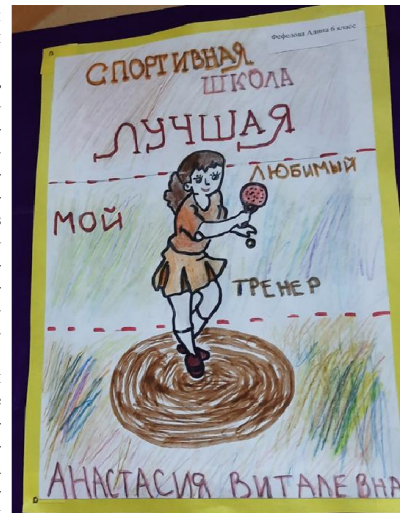 Фефелова Алина 6 класс
СПОРТИВНАЯ
ШКОЛА
ЛУЧШАЯ
ЛЮБИМЫЙ
МОЙ
ТРЕНЕР
АНАСТАСИЯ ВИТАЛЕВНА